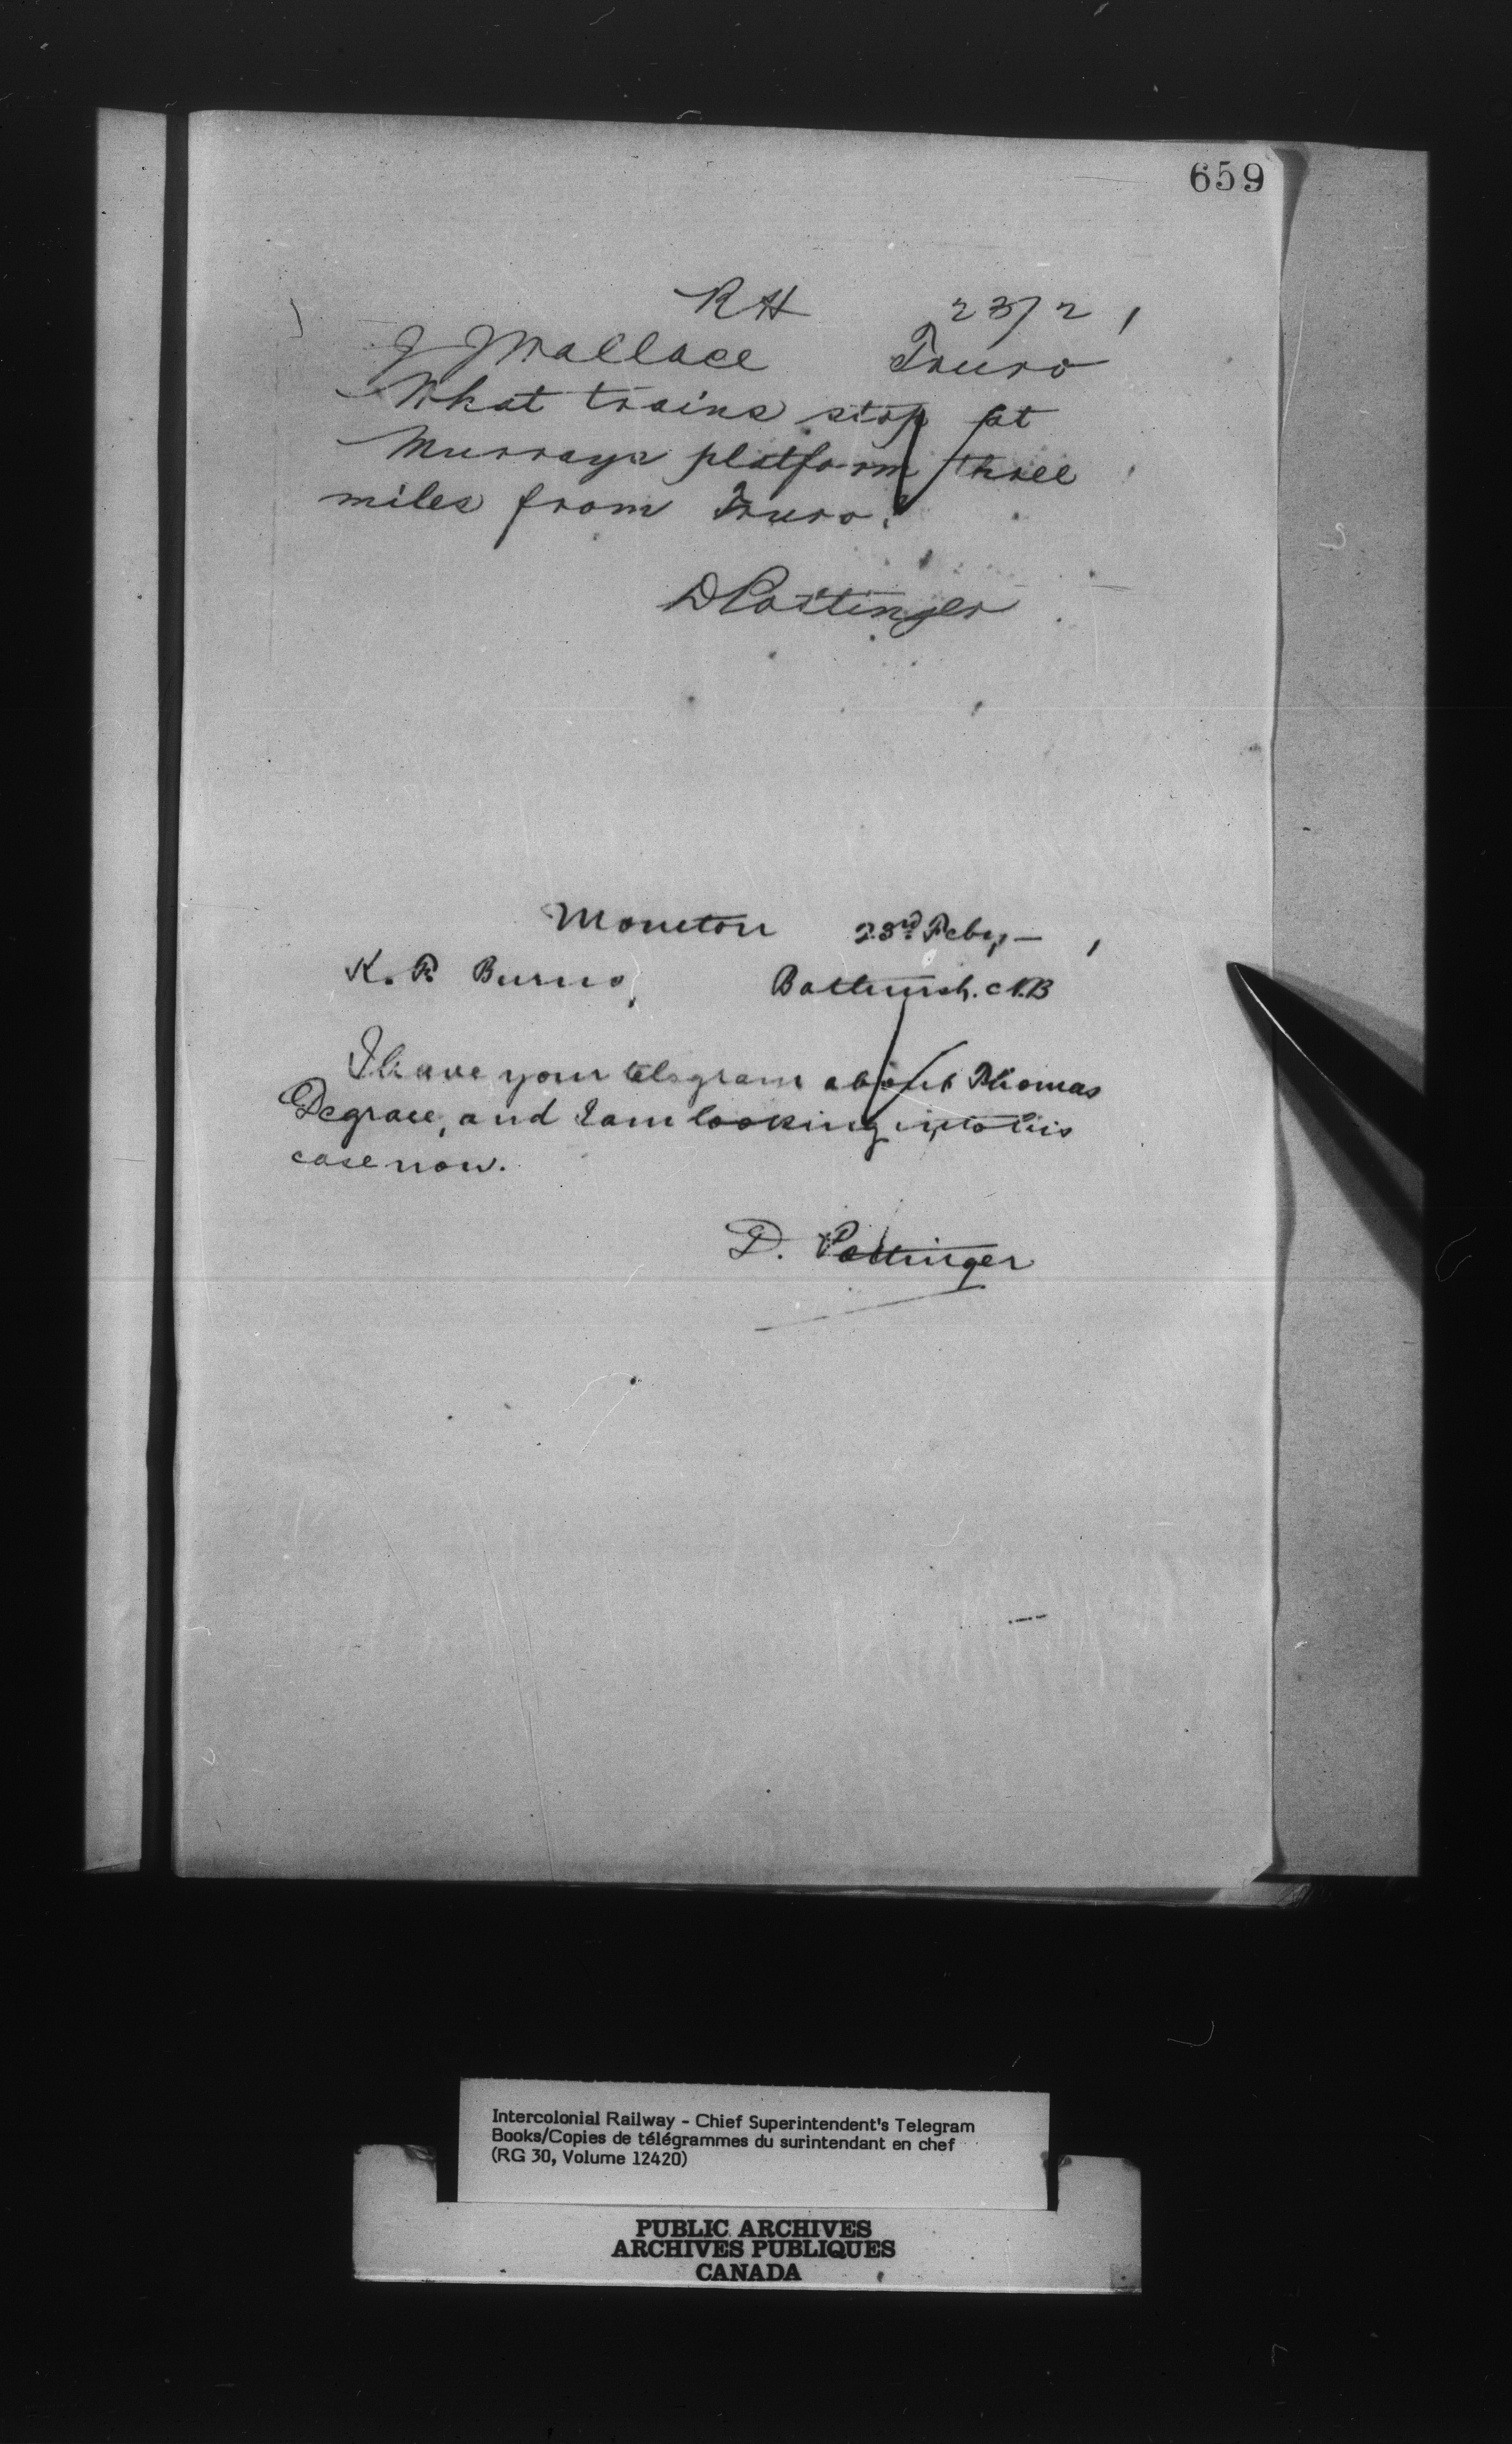 659
RH 23/2
J J Wallace Truro
What trains stop at
Murrays platform three
miles from Truro?
D Pottinger
Moncton 23rd Feby,—
K. F. Burns, Bathursh. N.B
I have your telegram about Thomas
Degrace, and I am looking into his
case now.
D. Pottinger
Intercolonial Railway - Chief Superintendent's Telegram
Books/Copies de télégrammes du surintendant en chef
(RG 30, Volume 12420)
PUBLIC ARCHIVES
ARCHIVES PUBLIQUES
CANADA